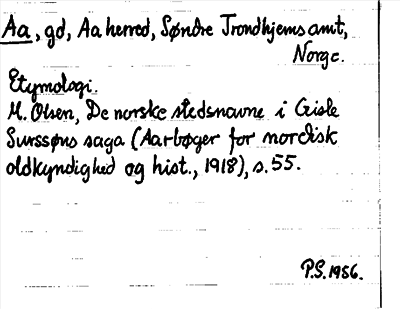 Aa, gd, Aa herred, Søndre Trondhjems amt,
Norge.
Etymologi.
M. Olsen, De norske stedsnavne i Gisle
Surssøns saga (Aarbøger for nordisk
oldkyndighed og hist., 1918), s. 55.
P.S. 1956.